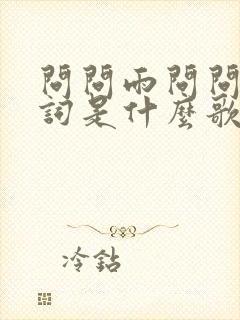 問問雨問問
詞是什麼歌
冷鉆